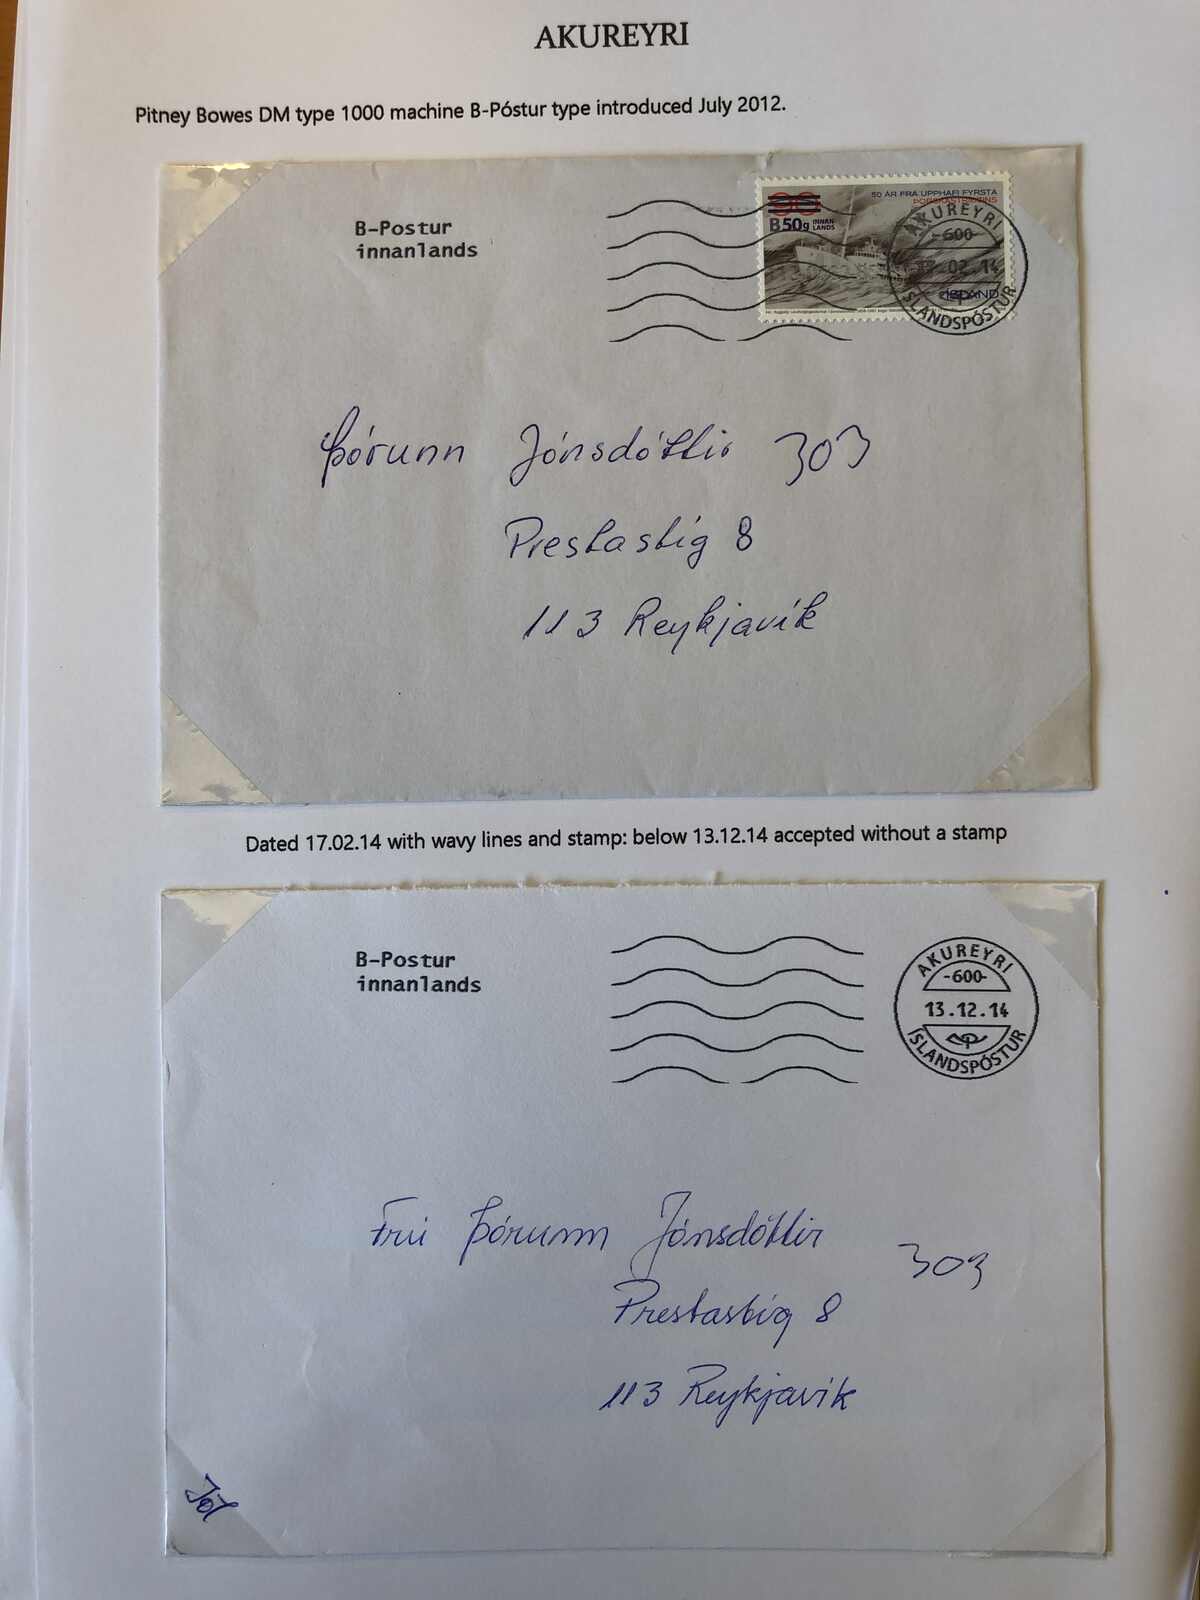 AKUREYRI
Pitney Bowes DM type 1000 machine B-Póstur type introduced July 2012.
B-Postur
innanlands
50 ÁR FRÁ UPPHAFI FYRSTA
ÞORSKASTRÍÐSINS
90
B50g INNAN
LANDS
ÍSLAND
AKUREYRI
-600-
02.14
ÍSLANDSPÓSTUR
Þórunn Jónsdóttir 303
Prestastíg 8
113 Reykjavík
Dated 17.02.14 with wavy lines and stamp: below 13.12.14 accepted without a stamp
B-Postur
innanlands
AKUREYRI
-600-
13.12.14
ÍSLANDSPÓSTUR
Frú Þórunn Jónsdóttir
303
Prestastíg 8
113 Reykjavík